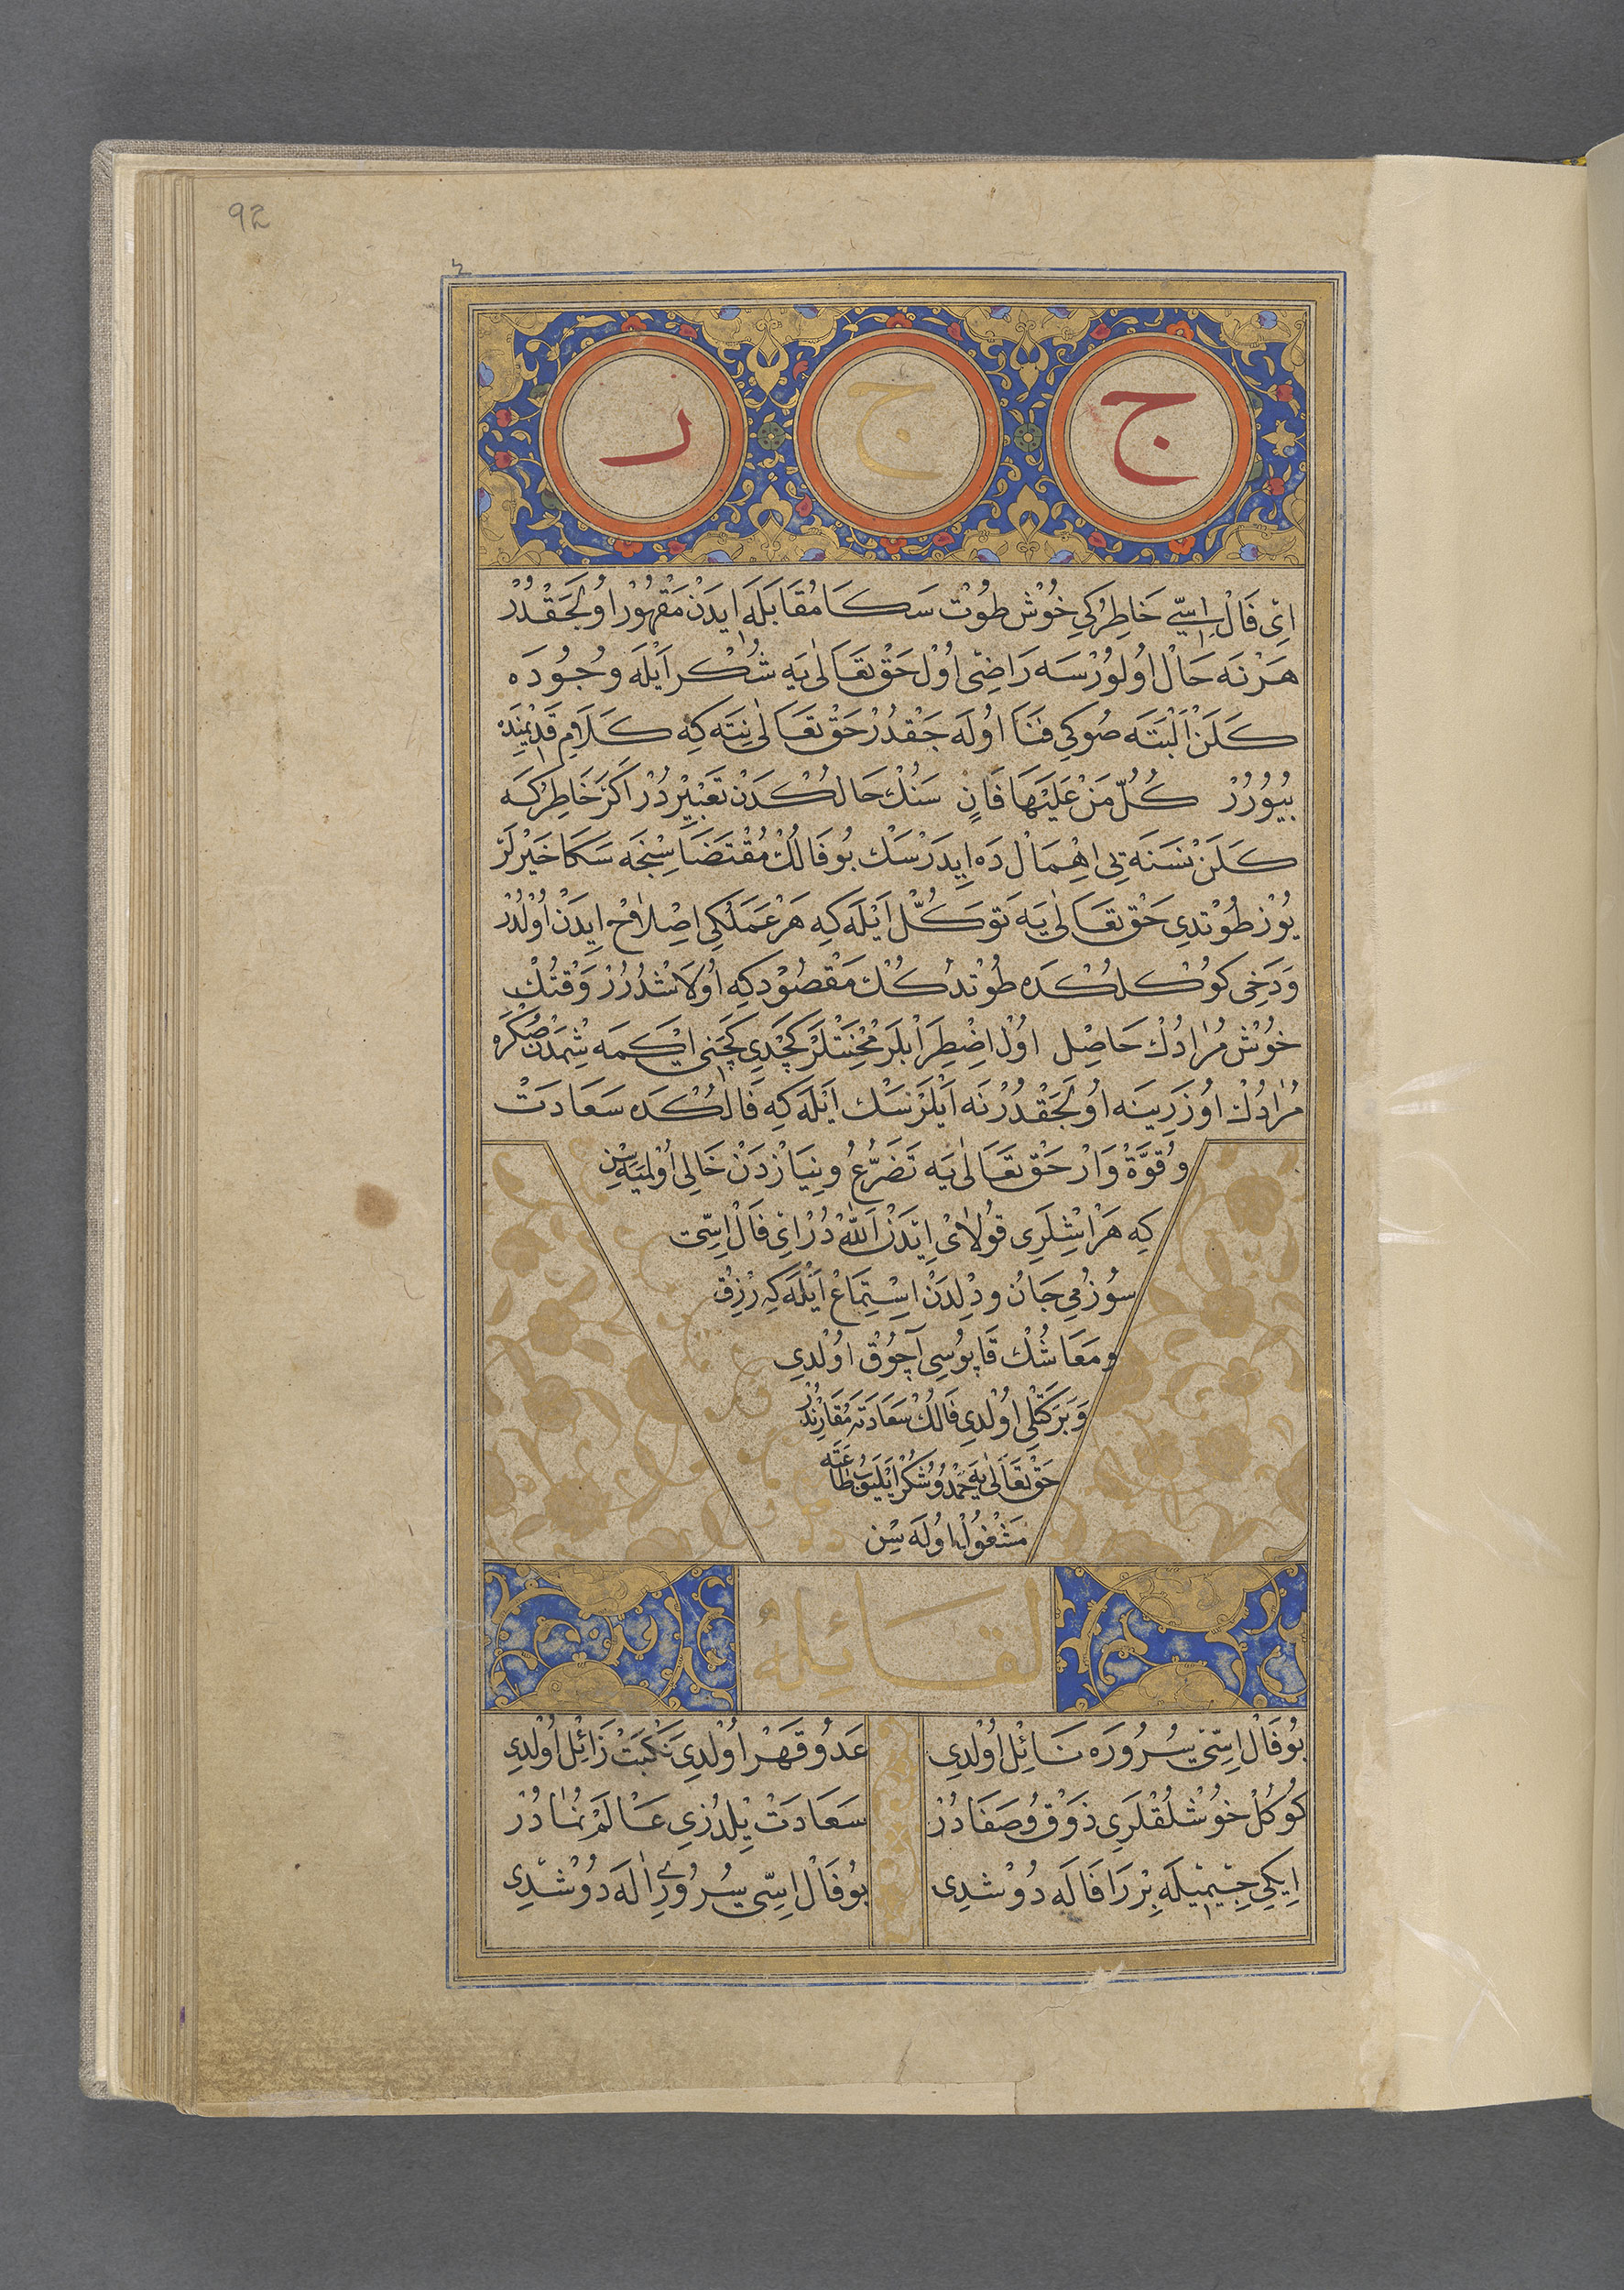 92
ج ج ر
اَیْ فَالْ اِسِّی خَاطِرُكِی خُوْشْ طُوْتْ سَكَا مُقَابَلَه اِیدَنْ مَقْهُوْرْ اُولَجَقْدُرْ
هَرْنَه حَالْ اُولُورْسَه رَاضِی اُوْلْ حَقْ تَعَالٰی یَه شُكْر اَیْلَه وُجُودَه
كَلَنْ اَلْبَتَّه صُوكِی فَنَا اُولَه جَقْدُرْ حَقْ تَعَالٰی نِتَه كِه كَلَامِ قَدِیْمِنْدَه
بُیُوْرُرْ كُلُّ مَنْ عَلَیْهَا فَانٍ سَنُكْ حَالُكْدَنْ تَعْبِیْر دُرْ اَكَرْ خَاطِرُكَه
كَلَنْ نَسْنَه یِی اِهْمَالْ دَه اِیدَرْسَكْ بُو فَالُكْ مُقْتَضَاسِنْجَه سَكَا خَیْرلَرْ
یُوْز طُوْتْدِی حَقْ تَعَالٰی یَه تَوَكُّلْ اَیْلَه كِه هَرْ عَمَلُكِی اِصْلَاحْ اِیدَنْ اُوْلْدُرْ
وَدَخِی كُوكُلُكْدَه طُوْتْدُكُكْ مَقْصُوْد كِه اُولَاشْدُرُرْ وَقْتُكْ
خُوْشْ مُرَادُكْ حَاصِل اُوْلْ اِضْطِرَابْلَرْ مِحْنَتْلَرْ كَچْدِی كَچَنِی اَیْكْمَه شِمْدَنْ صُكْرَه
مُرَادُكْ اُوْزَرِیْنَه اُولَجَقْدُرْ نَه اَیْلَرْسَكْ اَیْلَه كِه فَالُكْدَه سَعَادَتْ
وُقُوَّةْ وَارْ حَقْ تَعَالٰی یَه تَضَرُّعْ وُنِیَازْدَنْ خَالِی اُوْلْمَیَه سِنْ
كِه هَرْ اِشْلَرِی قُولَایْ اِیْدَنْ اَللّٰهْ دُرْ اَیْ فَالْ اِسِّی
سُوْزُمِی جَانُ ودِلْدَنْ اِسْتِمَاعْ اَیْلَه كِه رِزْقْ
ومَعَاشُكْ قَاپُوسِی آچُوْقْ اُوْلْدِی
وَبَرَكَتْلِی اُوْلْدِی فَالُكْ سَعَادَتَه مُقَارِنْدُرْ
حَقْ تَعَالٰی یَه حَمْدُ وُشُكْرْ اَیْلَیُوبْ طَاعَتَه
مَشْغُولْ اُولَه سِنْ
لقائله
بُو فَالْ اِسِّی سُرُورَه نَائِلْ اُوْلْدِی عَدُو قَهْرْ اُوْلْدِی نَكْبَتْ زَائِلْ اُوْلْدِی
كُوكُلْ خُوْشْلُقْلَرِی ذَوْقُ وُصَفَادُرْ سَعَادَتْ یِلْدُزِی عَالَمْ نُمَادُرْ
اِیْكِی جِیْمِیْلَه بِرْ رَا فَالَه دُوْشْدِی بُو فَالْ اِسِّی سُرُورِی اَلَه دُوْشْدِی